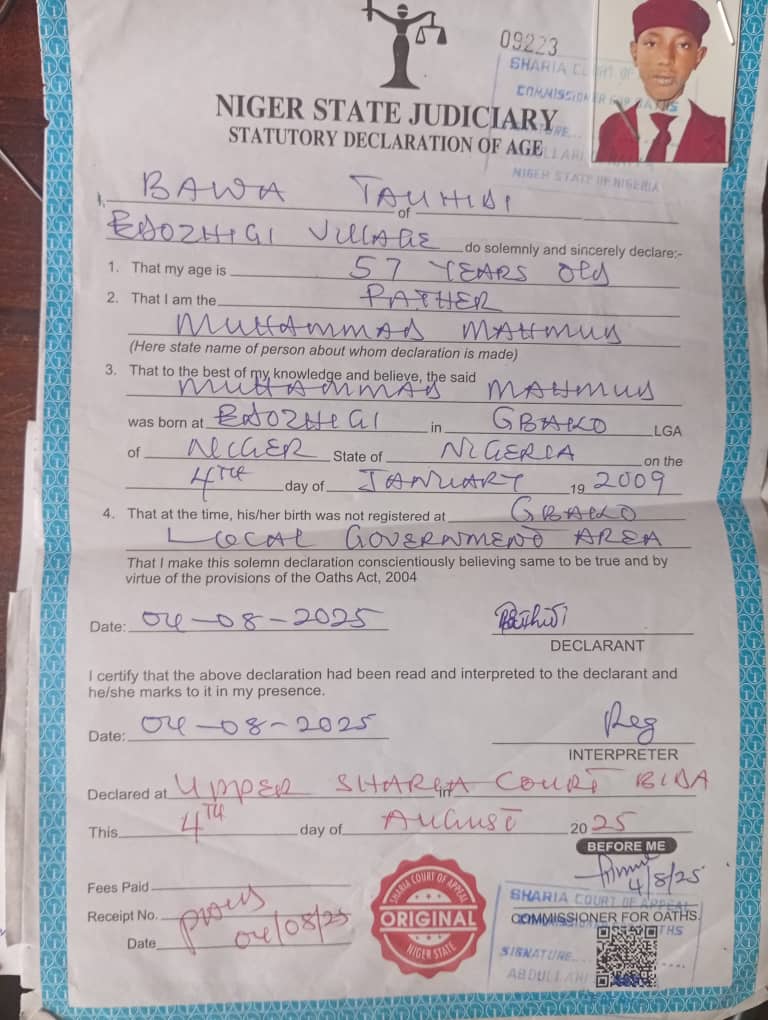 09223
SHARIA COURT OF
COMMISSIONER FOR OATHS
NIGER STATE OF NIGERIA
NIGER STATE JUDICIARY
STATUTORY DECLARATION OF AGE
I, BAWA TAUHIDI of
EDOZHIGI VILLAGE do solemnly and sincerely declare:-
1. That my age is 57 YEARS OLD
2. That I am the FATHER
MUHAMMAD MAHMUD
(Here state name of person about whom declaration is made)
3. That to the best of my knowledge and believe, the said
MUHAMMAD MAHMUD
was born at EDOZHIGI in GBAKO LGA
of NIGER State of NIGERIA on the
4TH day of JANUARY 19 2009
4. That at the time, his/her birth was not registered at GBAKO
LOCAL GOVERNMENT AREA
That I make this solemn declaration conscientiously believing same to be true and by
virtue of the provisions of the Oaths Act, 2004
Date: 04-08-2025
DECLARANT
I certify that the above declaration had been read and interpreted to the declarant and
he/she marks to it in my presence.
Date: 04-08-2025 Reg
INTERPRETER
Declared at UPPER SHARIA COURT BIDA
This 4TH day of AUGUST 20 25
BEFORE ME
4/8/25
Fees Paid
SHARIA COURT OF APPEAL
Receipt No.
COMMISSIONER FOR OATHS
Date 04/08/25
SHARIA COURT OF APPEAL
ORIGINAL
NIGER STATE
SIGNATURE...